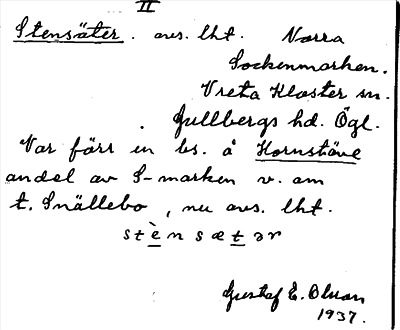 II
Stensäter. avs. lht. Norra
Sockenmarken.
Vreta Kloster sn.
Gullbergs hd. Ögl.
Var förr en bs. å Hornstäve
andel av S-marken v. om
t. Snällebo, nu avs. lht.
stènsætər
Gustaf E. Olson
1937.